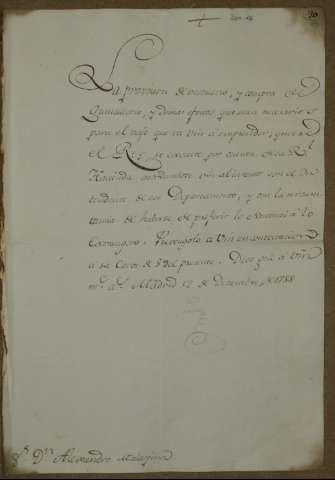 La provision de vestuario, y compra de
Quincalleria, y demas efectos que sean necesarios
para el viaje que va Vm à emprender, quiere
el Rey se execute por cuenta de la Rl
Hacienda, entendiendose Vm al intento con el In
tendente de ese Departamento, y con la
de haberse de preferir lo Nacional à lo
Extrangero. Vm en contextacion
à su Carta de 8 del presente. Dios gūe à Vm
ms as. Madrid 12 de Diciembre de 1788
Sr Dn Alexandro Malaspina